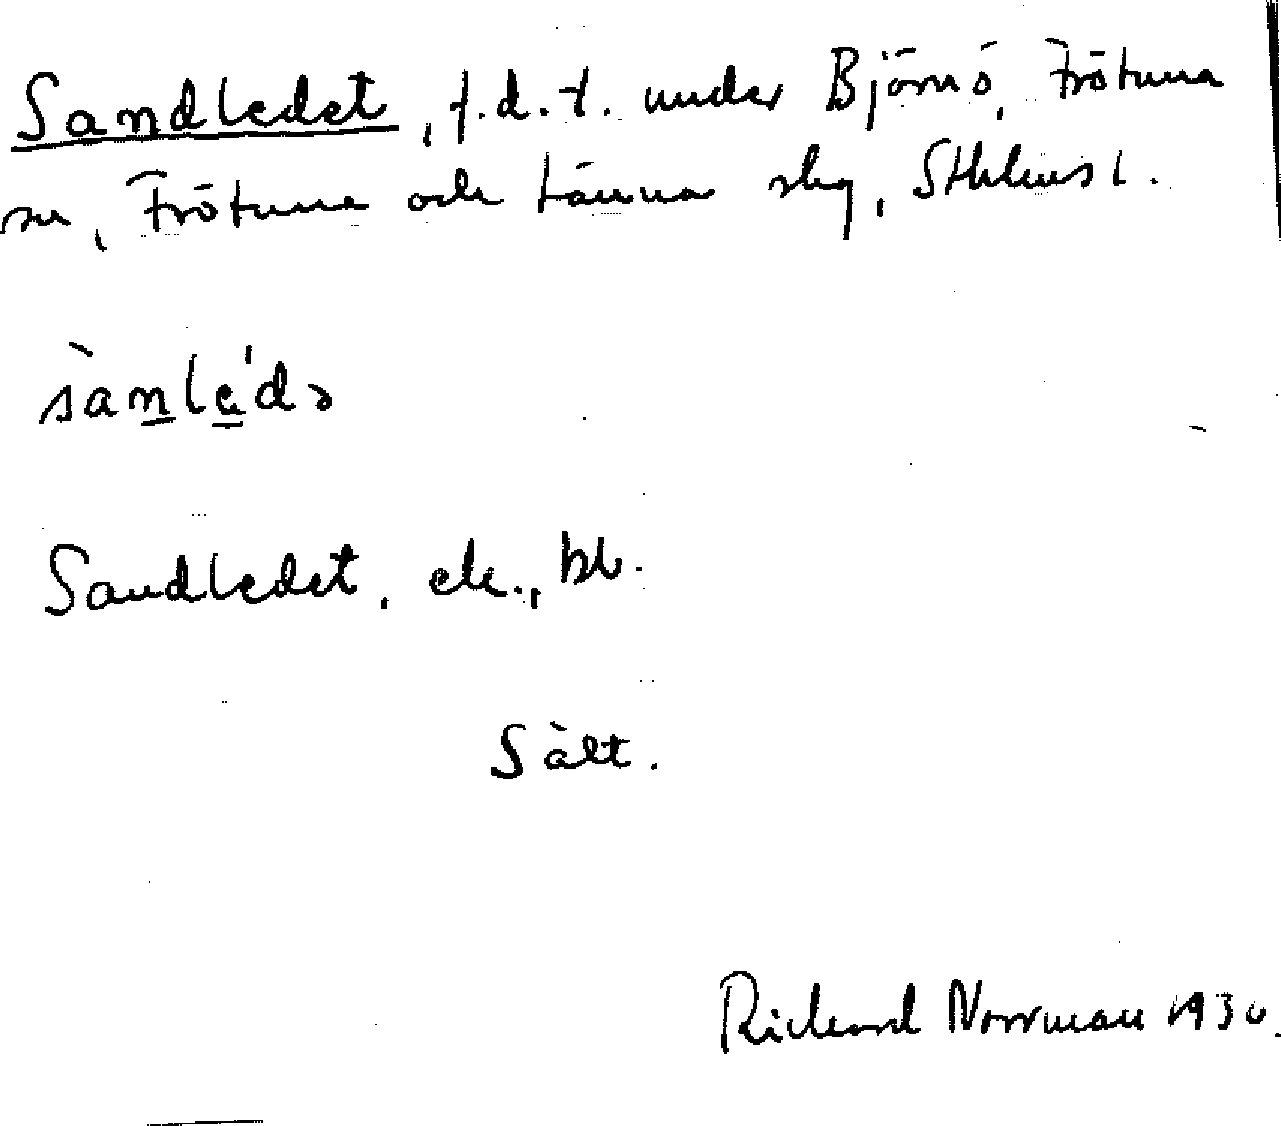 Sandledet, f.d.t. under Björnö, Frötuna
sn, Frötuna och Länna slg, Sthlms l.
sànle̱'də
Sandledet, ek., bl.
Sält.
Richard Norrman 1930.